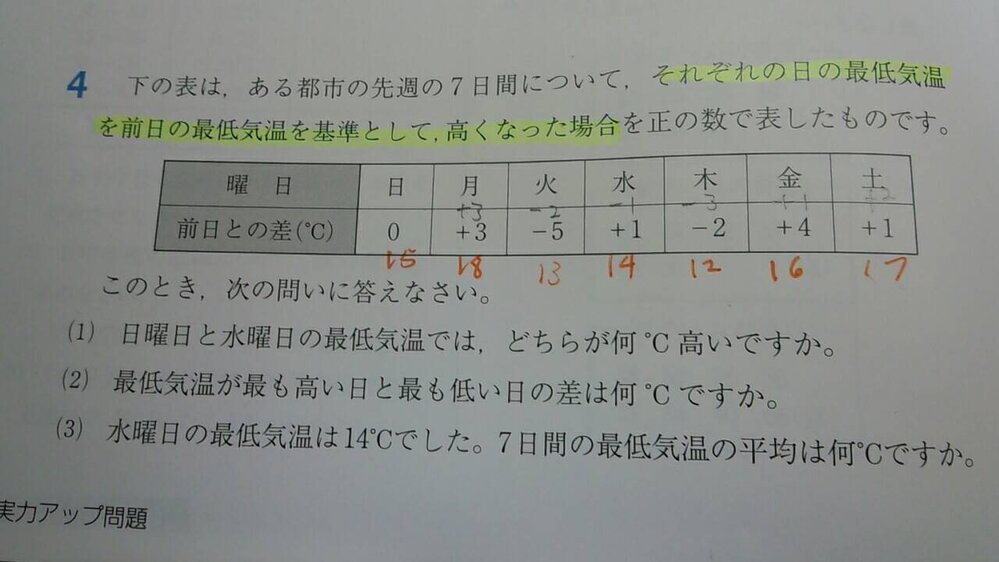 4 下の表は，ある都市の先週の7日間について，それぞれの日の最低気温
を前日の最低気温を基準として，高くなった場合を正の数で表したものです。
曜 日 日 月 火 水 木 金 土
+3 -2 -1 -3 +1 +2
前日との差(℃) 0 +3 -5 +1 -2 +4 +1
15 18 13 14 12 16 17
このとき，次の問いに答えなさい。
(1) 日曜日と水曜日の最低気温では，どちらが何℃高いですか。
(2) 最低気温が最も高い日と最も低い日の差は何℃ですか。
(3) 水曜日の最低気温は14℃でした。7日間の最低気温の平均は何℃ですか。
実力アップ問題